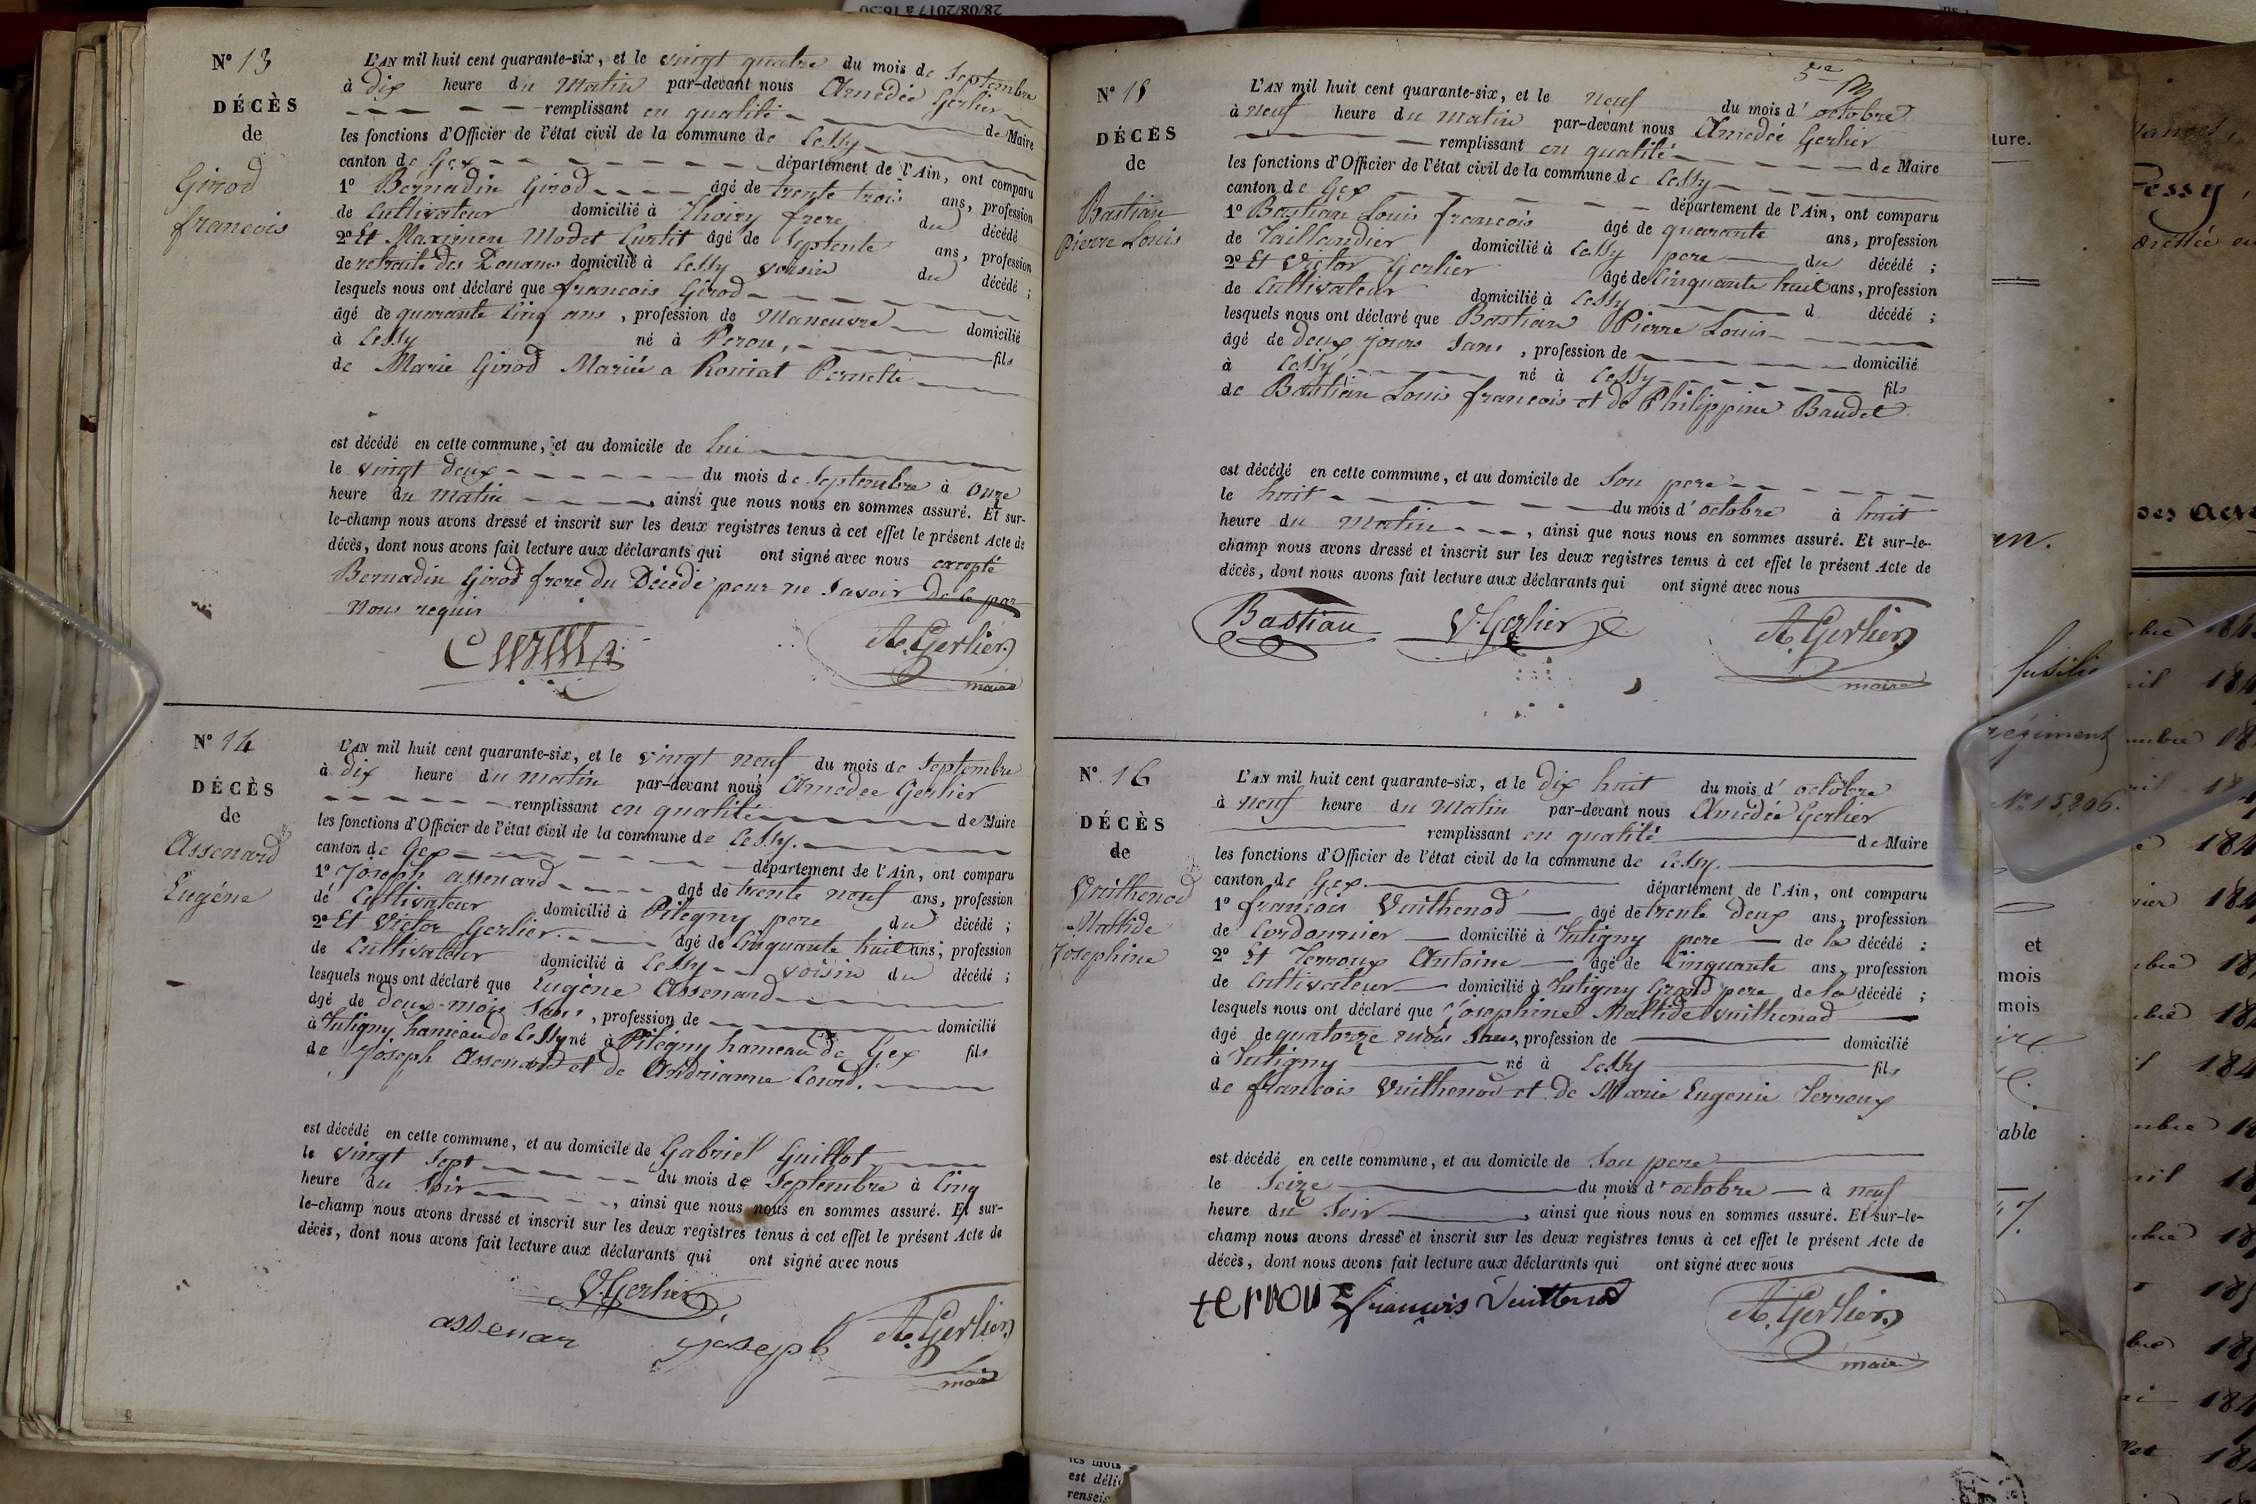 28/08/2017 à 16:30
N° 13
DÉCÈS
de
Girod
francois
L'AN mil huit cent quarante-six, et le vingt quatre du mois de Septembre
à dix heure du Matin par-devant nous Amédée Gerlier
remplissant en qualité de Maire
les fonctions d'Officier de l'état civil de la commune de Cessy
canton de Gex département de l'Ain, ont comparu
1° Bernadin Girod âgé de trente trois ans, profession
de Cultivateur domicilié à Thoiry frere du décédé
2° Et Maximien Modet Curtit âgé de Septente ans, profession
de retraité des Douanes domicilié à Cessy voisin du décédé ;
lesquels nous ont déclaré que francois Girod
âgé de quarante Cinq ans, profession de Maneuvre domicilié
à Cessy né à Peron, fils
de Marie Girod Mariée a Pernette
est décédé en cette commune, et au domicile de lui
le vingt deux du mois de Septembre à Onze
heure du Matin, ainsi que nous nous en sommes assuré. Et sur-
le-champ nous avons dressé et inscrit sur les deux registres tenus à cet effet le présent Acte de
décès, dont nous avons fait lecture aux déclarants qui ont signé avec nous excepté
Bernadin Girod frere du Décédé pour ne Savoir de ce par
Nous requis
A. Gerlier
maire
N° 14
DÉCÈS
de
Assenard
Eugéne
L'AN mil huit cent quarante-six, et le vingt neuf du mois de Septembre
à dix heure du matin par-devant nous Amedée Gerlier
remplissant en qualité de Maire
les fonctions d'Officier de l'état civil de la commune de Cessy.
canton de Gex département de l'Ain, ont comparu
1° Joseph assenard âgé de trente neuf ans, profession
de Cultivateur domicilié à Pitegny pere du décédé ;
2° Et Victor Gerlier. âgé de Cinquante huit ans ; profession
de Cultivateur domicilié à Cessy voisin du décédé ;
lesquels nous ont déclaré que Eugéne Assenard
âgé de deux mois Sans, profession de domicilié
à Tutigny hameau de Cessy né à Pitégny hameau de Gex fils
de Joseph Assenard et de Andrianne Courd.
est décédé en cette commune, et au domicile de Gabriel Guillot
le vingt Sept du mois de Septembre à Cinq
heure du Soir, ainsi que nous nous en sommes assuré. Et sur-
le-champ nous avons dressé et inscrit sur les deux registres tenus à cet effet le présent Acte de
décès, dont nous avons fait lecture aux déclarants qui ont signé avec nous
V. Gerlier
assenar josepb A. Gerlier
maire
N° 15
DÉCÈS
de
Bastian
Pierre Louis
L'AN mil huit cent quarante-six, et le neuf du mois d'octobre
à neuf heure du matin par-devant nous Amedée Gerlier
remplissant en qualité de Maire
les fonctions d'Officier de l'état civil de la commune de Cessy
canton de Gex département de l'Ain, ont comparu
1° Bastian Louis francois âgé de quarante ans, profession
de Taillandier domicilié à Cessy pere du décédé ;
2° Et Victor Gerlier âgé de Cinquante huit ans, profession
de Cultivateur domicilié à Cessy d décédé ;
lesquels nous ont déclaré que Bastian Pierre Louis
âgé de deux jours Sans, profession de domicilié
à Cessy né à Cessy fils
de Bastian Louis francois et de Philippine Baudet
est décédé en cette commune, et au domicile de Son pere
le huit du mois d'octobre à huit
heure du Matin, ainsi que nous nous en sommes assuré. Et sur-le-
champ nous avons dressé et inscrit sur les deux registres tenus à cet effet le présent Acte de
décès, dont nous avons fait lecture aux déclarants qui ont signé avec nous
Bastian V. Gerlier A. Gerlier
maire
N° 16
DÉCÈS
de
Vuithenod
Mattide
Josephine
L'AN mil huit cent quarante-six, et le dix huit du mois d'octobre
à neuf heure du Matin par-devant nous Amédée Gerlier
remplissant en qualité de Maire
les fonctions d'Officier de l'état civil de la commune de Cessy.
canton de Gex département de l'Ain, ont comparu
1° francois Vuithenod âgé de trente deux ans, profession
de Cordonnier domicilié à Tutigny pere de la décédé ;
2° Et Terroux Antoine âgé de Cinquante ans, profession
de Cultivateur domicilié à Tutigny Grand pere de la décédé ;
lesquels nous ont déclaré que Josephine Mattide Vuithenod
âgé de quatorze mois Sans, profession de domicilié
à Tutigny né à Cessy fils
de francois Vuithenod et de Marie Eugenie Terroux
est décédé en cette commune, et au domicile de Son pere
le Seize du mois d'octobre à neuf
heure du Soir, ainsi que nous nous en sommes assuré. Et sur-le-
champ nous avons dressé et inscrit sur les deux registres tenus à cet effet le présent Acte de
décès, dont nous avons fait lecture aux déclarants qui ont signé avec nous
terroux francois Vuittenod A. Gerlier
maire
ture.
fusilie
régiment
N° 15,206.
et
mois
mois
able
Cessy,
184
184